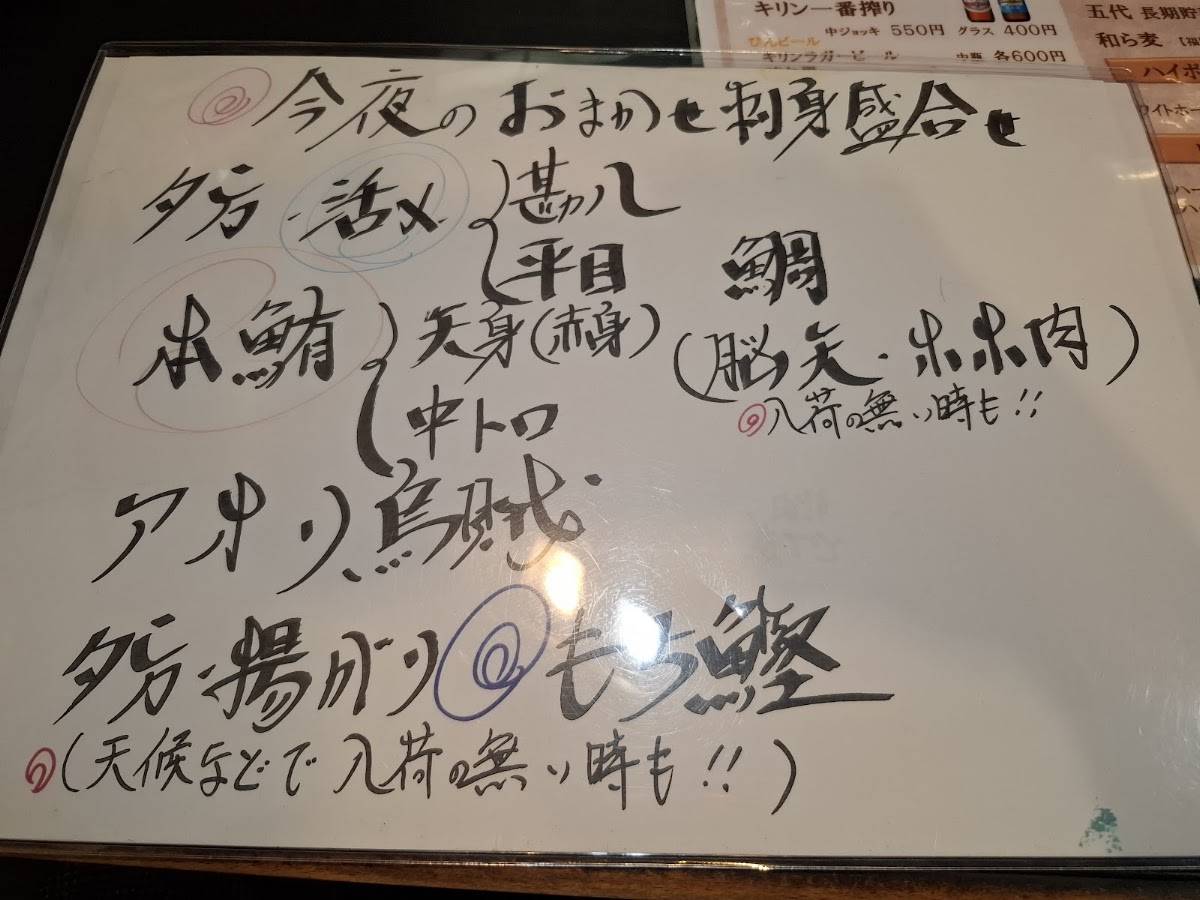 キリン一番搾り
中ジョッキ 550円 グラス 400円
びんビール
キリンラガービール 中瓶 各600円
五代 長期貯
和ら麦
ハイボ
今夜のおまかせ刺身盛合せ
夕方・活〆 勘八
平目
鯛
本鮪 天身(赤身)
中トロ
(脳天・ホホ肉)
入荷の無い時も!!
アオリ烏賊
夕方・揚がり もち鰹
(天候などで入荷の無い時も!!)